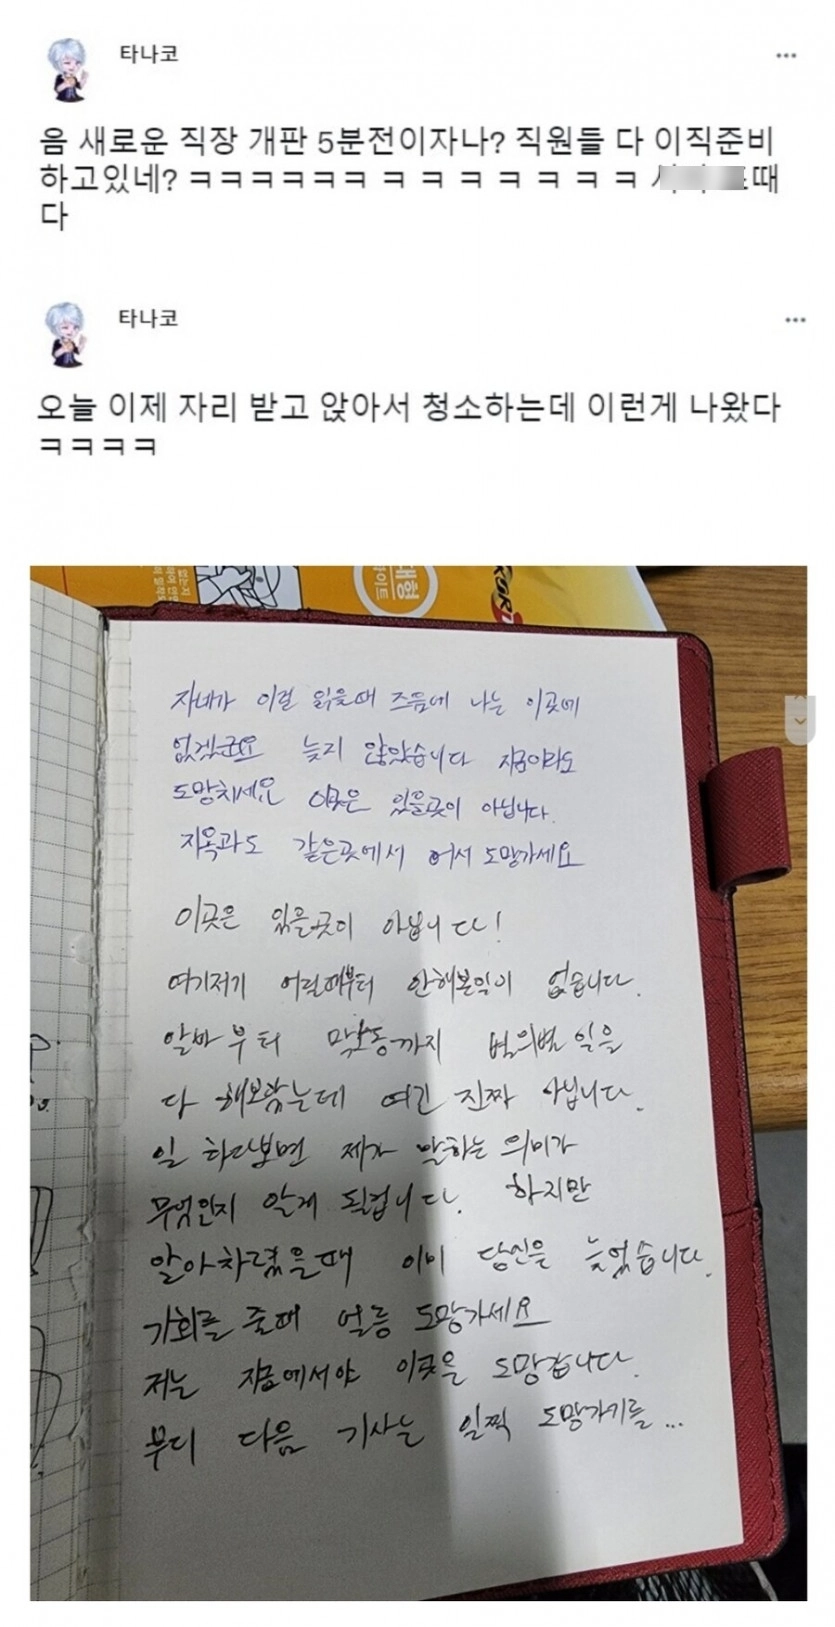 타나코
음 새로운 직장 개판 5분전이자나? 직원들 다 이직준비
하고있네? ㅋㅋㅋㅋㅋㅋ ㅋ ㅋ ㅋ ㅋ ㅋ ㅋ ㅋ 때
다
타나코
오늘 이제 자리 받고 앉아서 청소하는데 이런게 나왔다
ㅋㅋㅋㅋ
자네가 이걸 읽을때 즈음에 나는 이곳에
없겠군요 늦지 않았습니다 지금이라도
도망치세요 이곳은 있을곳이 아닙니다.
지옥과도 같은곳에서 어서 도망가세요
이곳은 있을곳이 아닙니다!
여기저기 어릴때부터 안해본일이 없습니다.
알바부터 막노동까지 별의별 일을
다 해보았는데 여긴 진짜 아닙니다.
일 하다보면 제가 말하는 의미가
무엇인지 알게 될겁니다. 하지만
알아차렸을때 이미 당신은 늦었습니다.
기회를 줄때 얼릉 도망가세요
저는 지금에서야 이곳을 도망갑니다.
부디 다음 기사는 일찍 도망가기를...